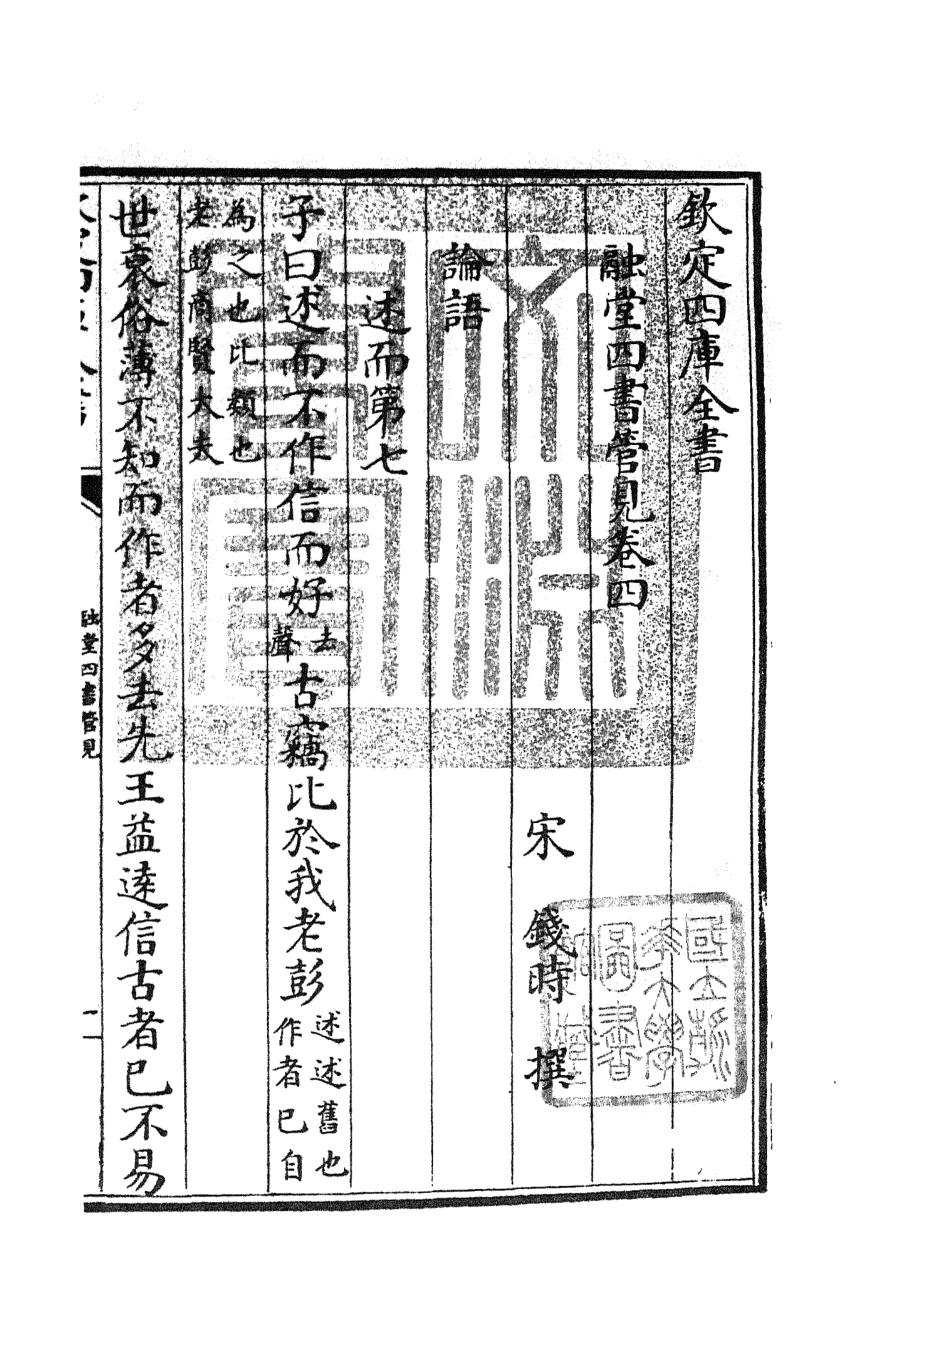 欽定四庫全書
融堂四書管見卷四
宋 錢時 撰
論語
述而第七
子曰述而不作信而好去聲古竊比於我老彭述述舊也作者已自
為之也比類也老彭商賢大夫
世衰俗薄不知而作者多去先王益逺信古者已不易
融堂四書管見
一